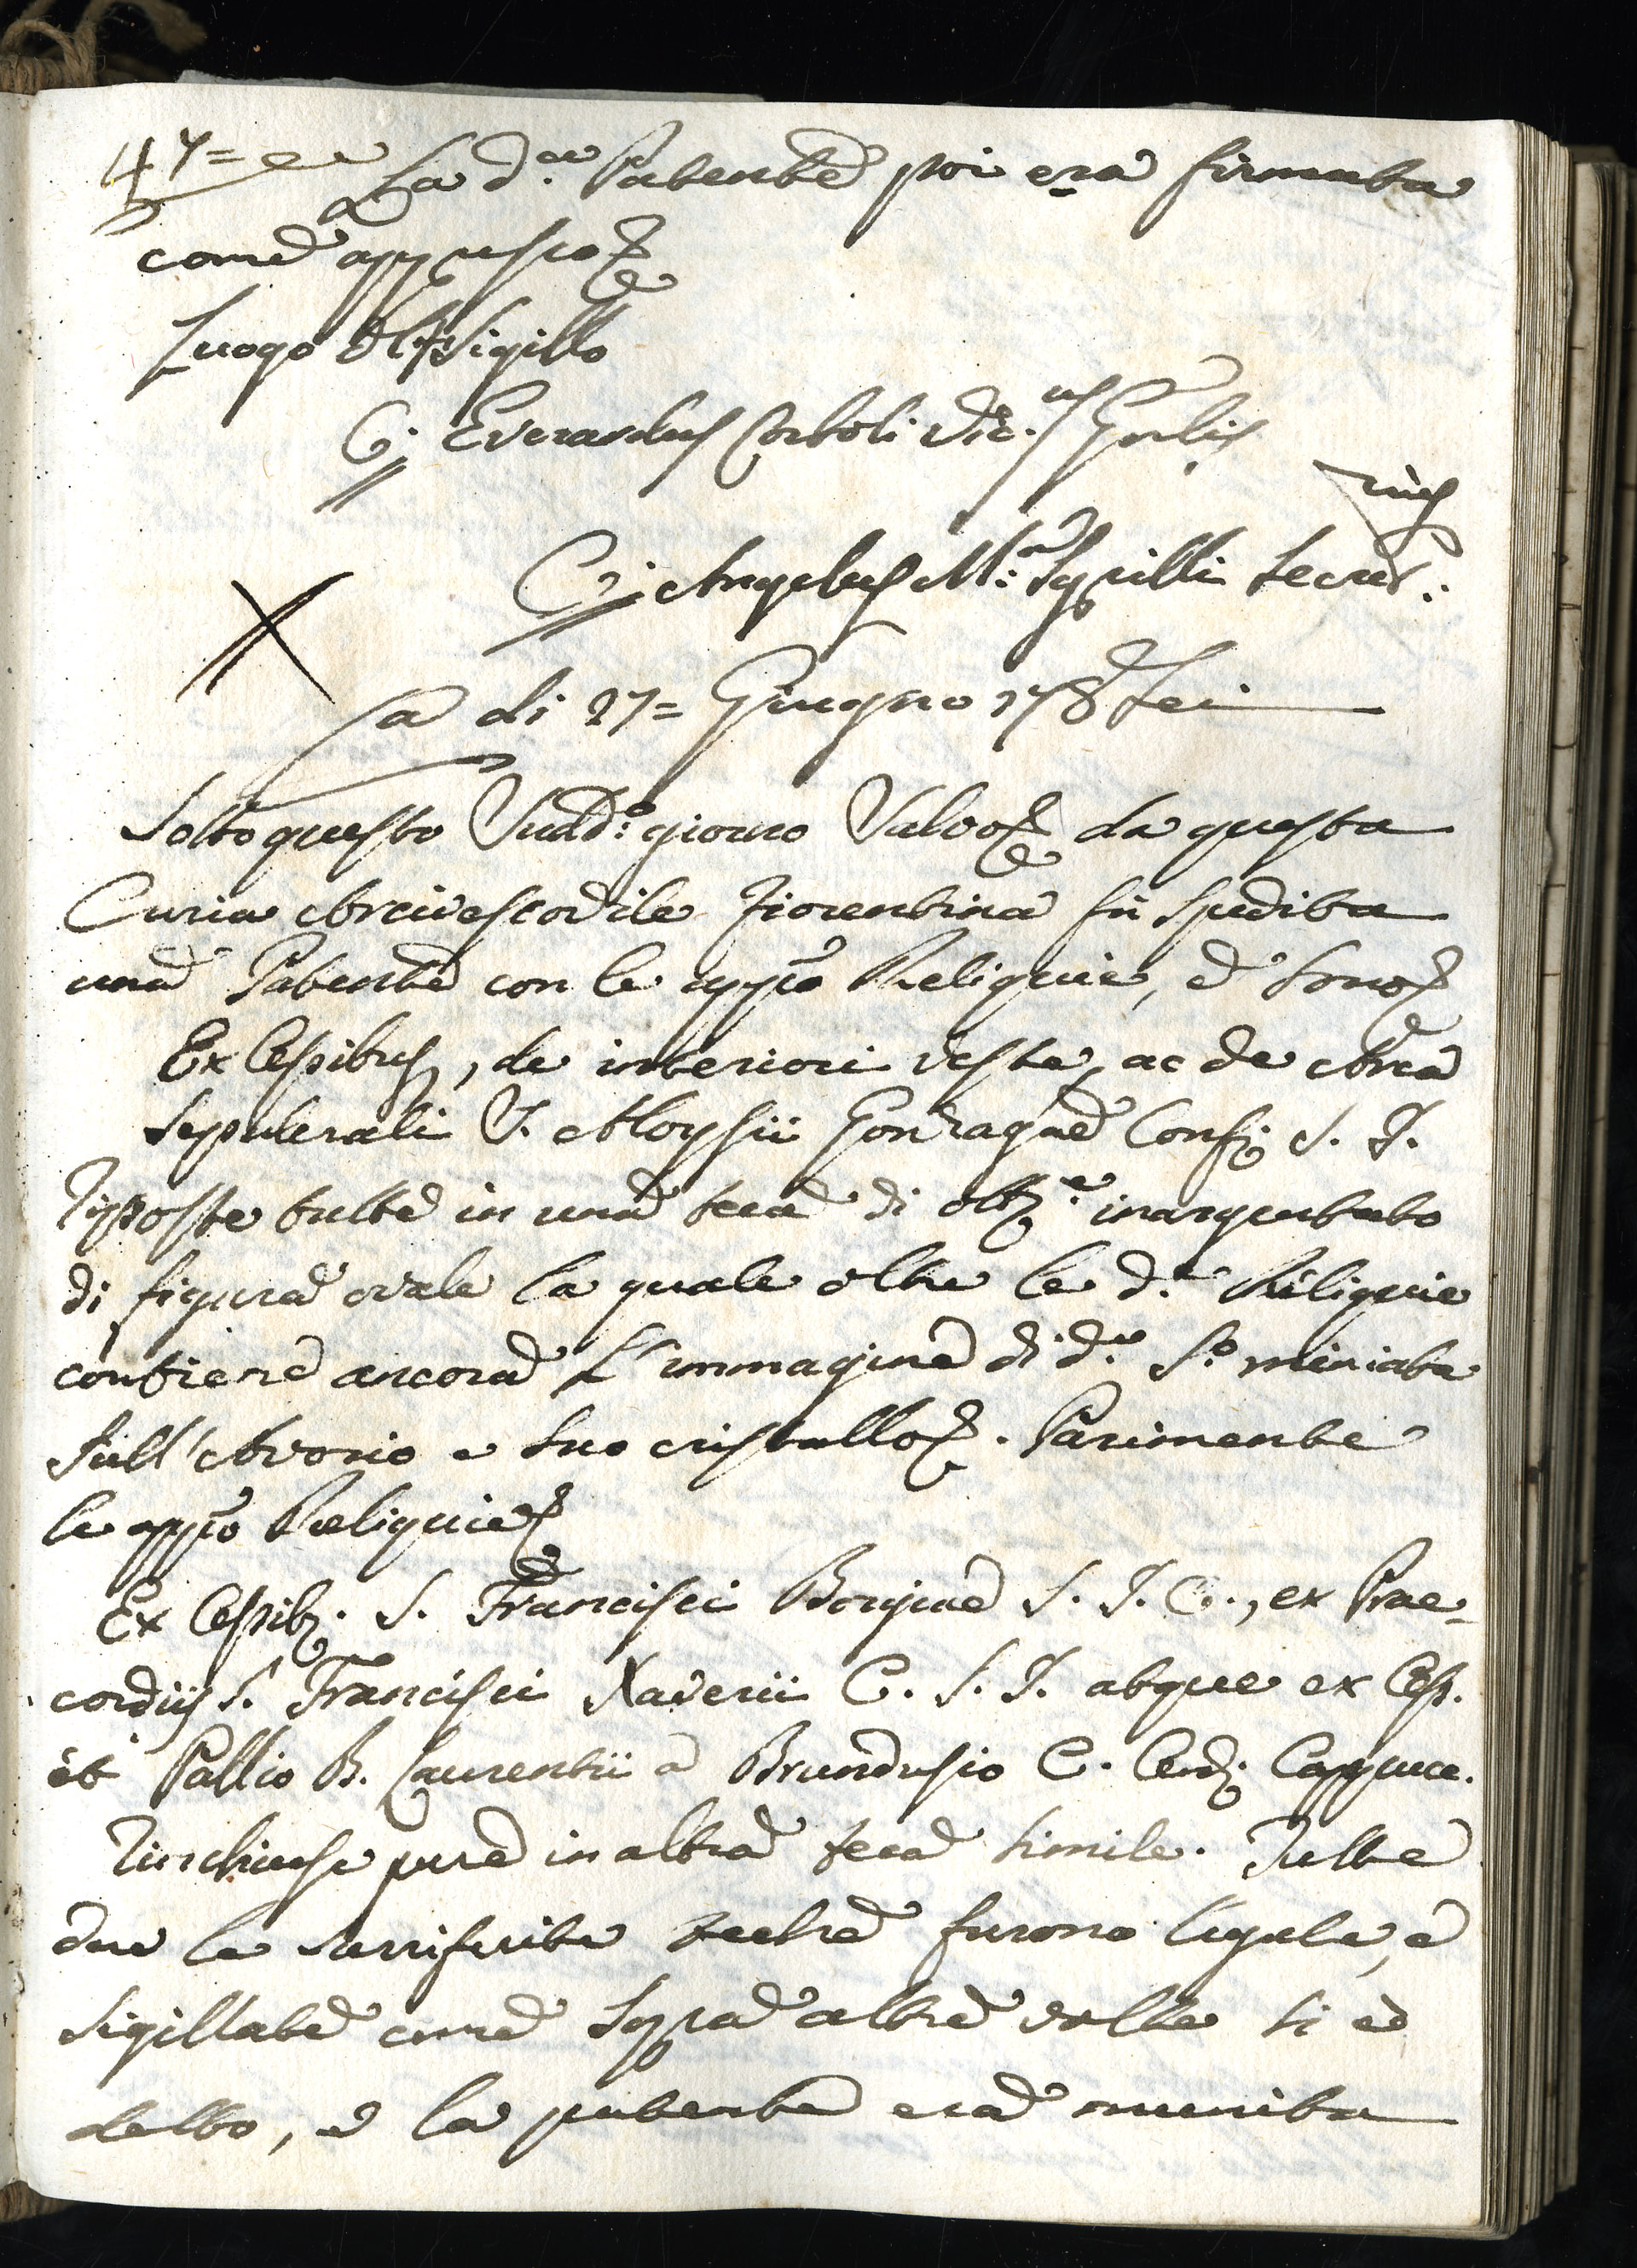 47=
La d.ª Patente poi era firmata
come appresso
Luogo del Sigillo
C. Everardus Corboli Vic.us Gñlis
C. Angelus M.ª Squilli Secret.rius
A di 27= Giugno 178sei
Sotto questo Sudd.º giorno Salvo da questa
Curia Arcivescovile Fiorentina fù Spedita
una Patente con le appsso Reliquie, e Sono
Ex Cessibus, de interiori veste, ac de Arca
Sepulcrali S. Aloysii Gonzagae Conf. S. J.
Riposte tutte in una teca di ott.e inargentato
di figura ovale la quale oltre le d.e Reliquie
contiene ancora L'immagine di d.o S.o miniata
Sull'Avorio e Suo cristallo. Parimente
le appsso Reliquie
Ex Cessib. S. Francisci Borgiae S. J. C., ex Prae-
cordijs S. Francisci Xaverii C. S. J. atque ex Cess.
et Pallio B. Laurentii a Brundusio C. Ord. Cappucc.
Rinchiuse pure in altra teca Simile. Tutte
due le surriferite teche furono legate, e
Sigillate come Sopra altre volte Si è
detto, e la patente era munita